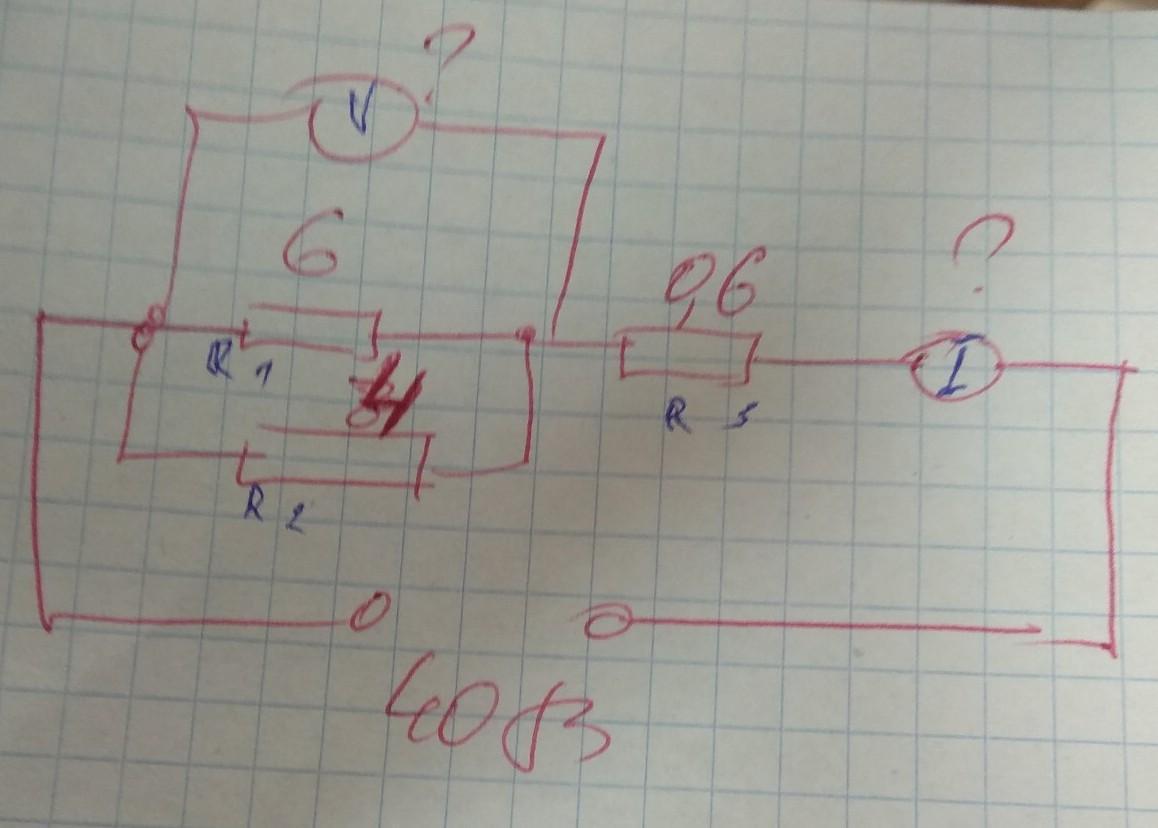 ?
V
6
0,6
?
R 1
I
R 3
4
R 2
40 В